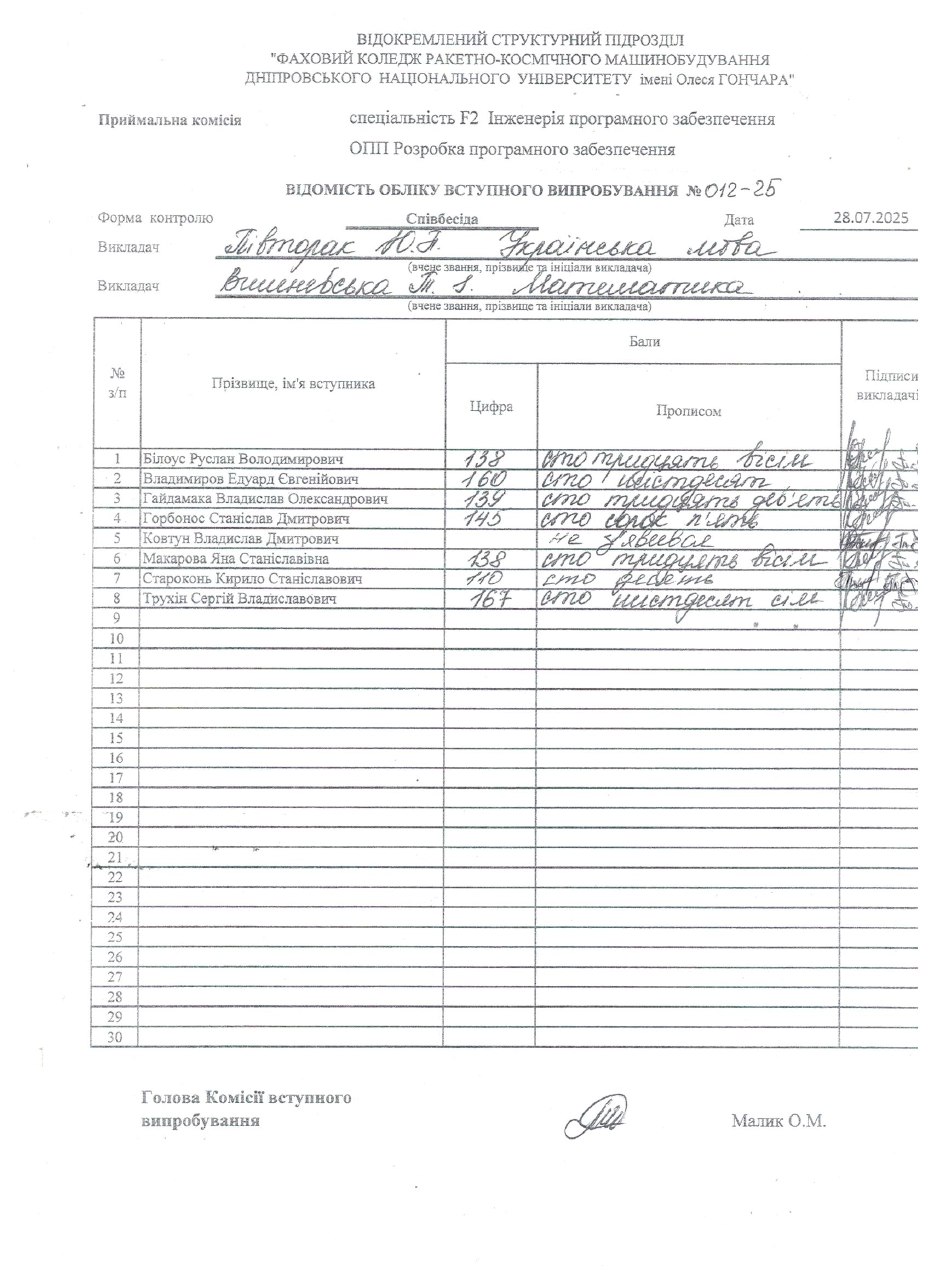 ВІДОКРЕМЛЕНИЙ СТРУКТУРНИЙ ПІДРОЗДІЛ
"ФАХОВИЙ КОЛЕДЖ РАКЕТНО-КОСМІЧНОГО МАШИНОБУДУВАННЯ
ДНІПРОВСЬКОГО НАЦІОНАЛЬНОГО УНІВЕРСИТЕТУ імені Олеся ГОНЧАРА"
Приймальна комісія спеціальність F2 Інженерія програмного забезпечення
ОПП Розробка програмного забезпечення
ВІДОМІСТЬ ОБЛІКУ ВСТУПНОГО ВИПРОБУВАННЯ № 012-25
Форма контролю Співбесіда Дата 28.07.2025
Викладач Півторак Ю.П. Українська мова
(вчене звання, прізвище та ініціали викладача)
Викладач Вишневська Т. І. Математика
(вчене звання, прізвище та ініціали викладача)
№ з/п Прізвище, ім'я вступника Бали Підписи викладачі
Цифра Прописом
1 Білоус Руслан Володимирович 138 сто тридцять вісім
2 Владимиров Едуард Євгенійович 160 сто шістдесят
3 Гайдамака Владислав Олександрович 139 сто тридцять дев'ять
4 Горбонос Станіслав Дмитрович 145 сто сорок п'ять
5 Ковтун Владислав Дмитрович не з'явився
6 Макарова Яна Станіславівна 138 сто тридцять вісім
7 Староконь Кирило Станіславович 110 сто десять
8 Трухін Сергій Владиславович 167 сто шістдесят сім
9
10
11
12
13
14
15
16
17
18
19
20
21
22
23
24
25
26
27
28
29
30
Голова Комісії вступного
випробування Малик О.М.